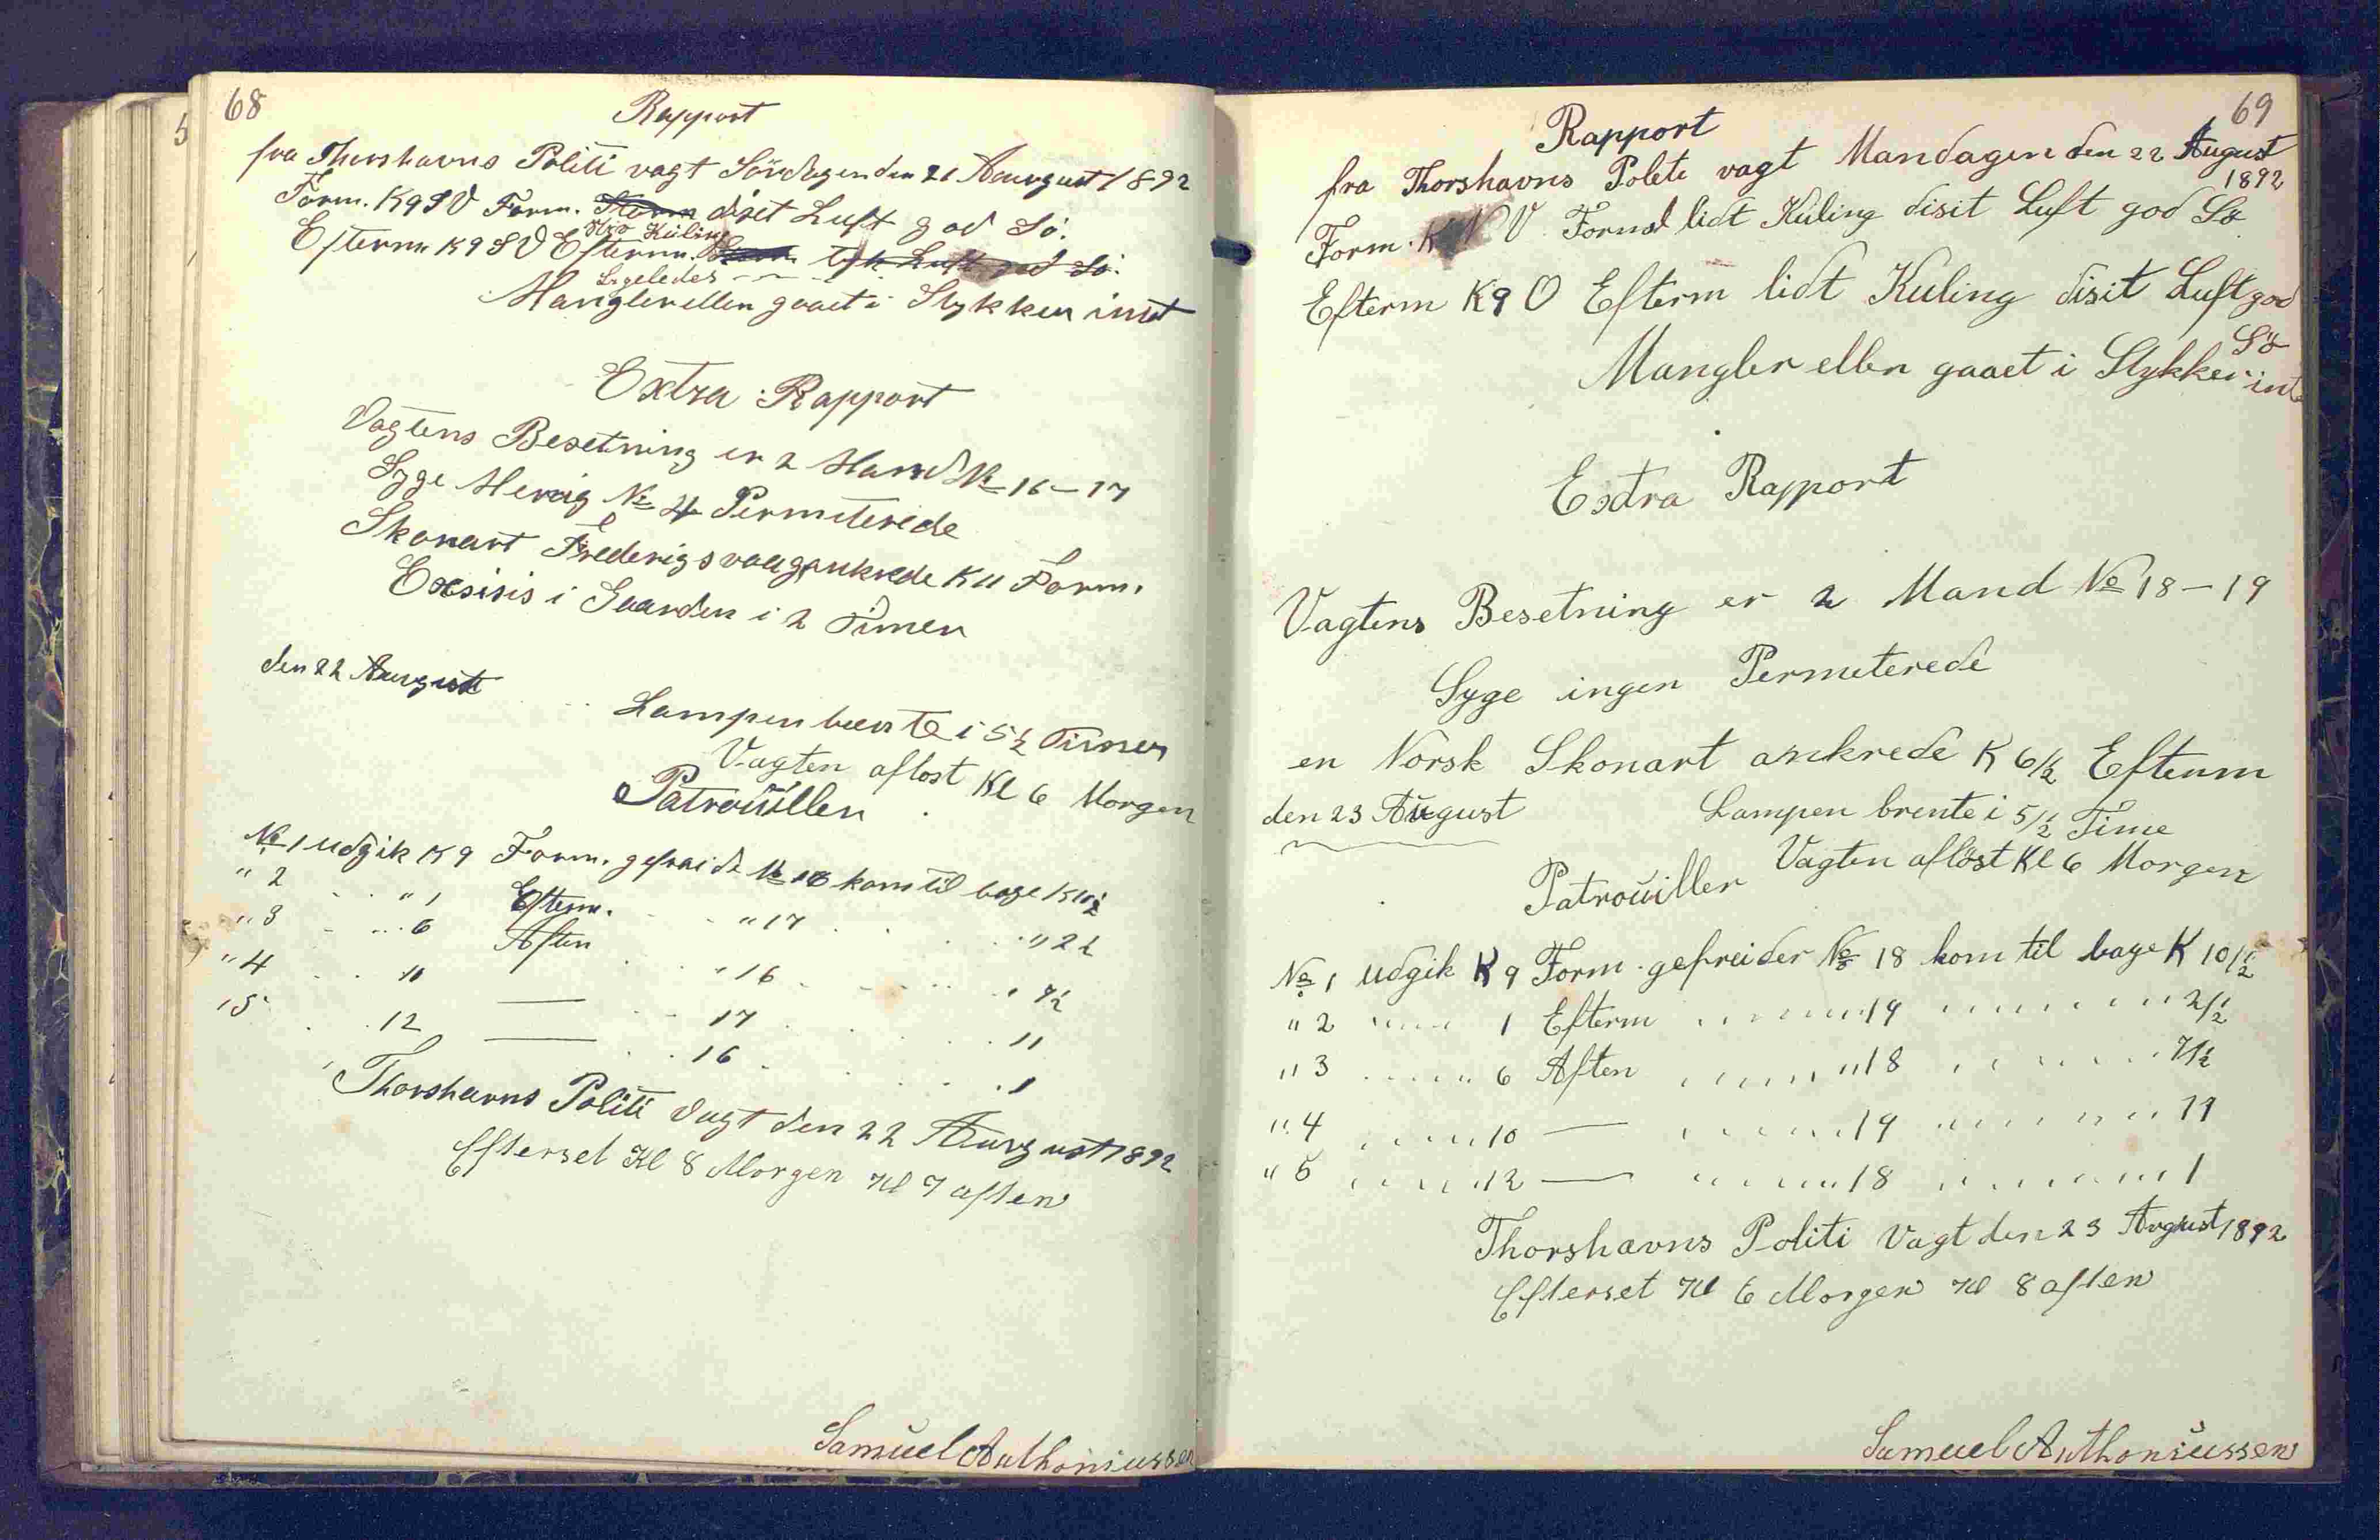 68
Rapport
fra Thorshavns Politi vagt Söndagen den 21 Auurgust 1892
Form. K 9 S V Form. disit Luft god Sö.
Efterm K 9 S V Efterm. Kuling tyk Luft god Sö.
Ligeledes
Mangler ellen gaaet i Stykker intet
Extra Rapport
Vagtens Besetning er 2 Mand № 16 – 17
Syge № 4 Permeterede
Skonart Frederigsvaag ankrede K 11 Form.
Exsisis i Gaarden i 2 Timer
den 22 August
Lampen brente i 5½ Timer
Vagten aflost Kl 6 Morgen
Patrouillen
№ 1 udgik K 9 Form. gefraide № 16 kom til bage K 10½
" 2 " 1 Efterm. " 17 " 2½
" 3 6 Aften " 16 " 7½
" 4 10 — 17 11
" 5 12 — 16 1
Thorshavns Politi Vagt den 22 Auurgust 1892
Efterset Kl 8 Morgen Kl 7 aften
Samuel Anthoniussen
69
Rapport
fra Thorshavns Polete vagt Mandagen den 22 August
1892
Form. K N V Formd lidt Kuling disit Luft god Sø
Efterm K 9 O Efterm lidt Kuling disit Luft god
Sø
Mangler ellen gaaet i Stykker int
Extra Rapport
Vagtens Besetning er 2 Mand № 18 – 19
Syge ingen Permeterede
en Norsk Skonart ankrede K 6½ Efterm
den 23 August Lampen brente i 5½ Time
Vagten aflöst Kl 6 Morgen
Patrouiller
№ 1 udgik K 9 Form. gefreider № 18 kom til bage K 10½
" 2 1 Efterm 19 2½
" 3 6 Aften 18 7½
" 4 10 — 19 11
" 5 12 — 18 1
Thorshavns Politi Vagt den 23 August 1892
Efterset Kl 6 Morgen Kl 8 aften
Samuel Anthoniussen